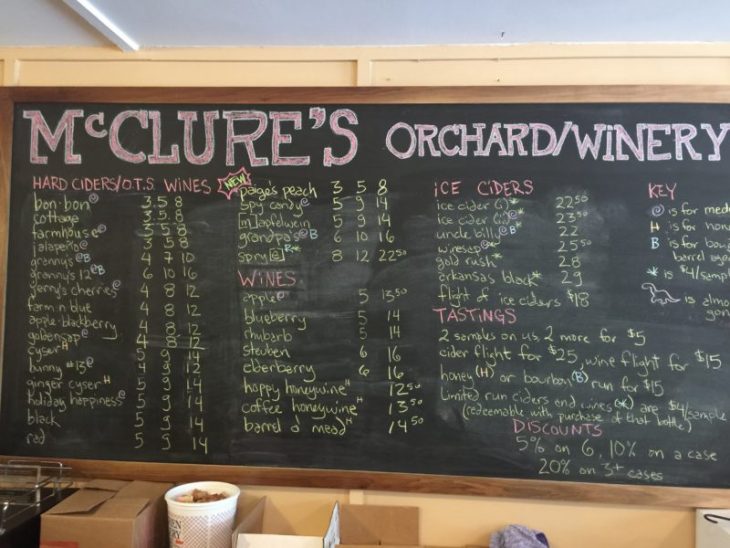 McCLURE'S ORCHARD/WINERY
HARD CIDERS/O.T.S. WINES
bon-bon @ 3 5 8
cottage 3 5 8
farmhouse @ 3 5 8
jalapeño @ 3 5 8
granny's @ B 4 7 10
granny's 12 @ B 6 10 16
cherries @ 4 8 12
farm n blue 4 8 12
apple-blackberry 4 8 12
@ 4 8 12
cyser H 5 9 14
bunny #13 @ 5 9 14
ginger cyser H 5 9 14
holiday happiness @ 5 9 14
black 5 9 14
rad 5 9 14
NEW
paige's peach 3 5 8
spy candy @ 5 9 14
[m]apfelwein 5 9 14
grandpa's @ B 6 10 16
8 12 22.50
WINES
apple @ 5 13.50
blueberry 5 14
rhubarb 5 14
steuben 6 16
elberberry 6 16
hoppy honeywine H 12.50
coffee honeywine H 13.50
barrel o' mead H 14.50
ICE CIDERS
ice cider (i) * 22.50
ice cider (ii) * 23.50
uncle bill @ B 22
winesap @ * 25.50
gold rush * 28
arkansas black * 29
flight of ice ciders $18
TASTINGS
2 samples on us, 2 more for $5
cider flight for $25, wine flight for $15
honey (H) or bourbon (B) run for $15
Limited run ciders and wines (*) are $4/sample
(redeemable with purchase of that bottle)
DISCOUNTS
5% on 6, 10% on a case
20% on 3+ cases
KEY
@ is for
H is for
B is for
* is $4/sample
is